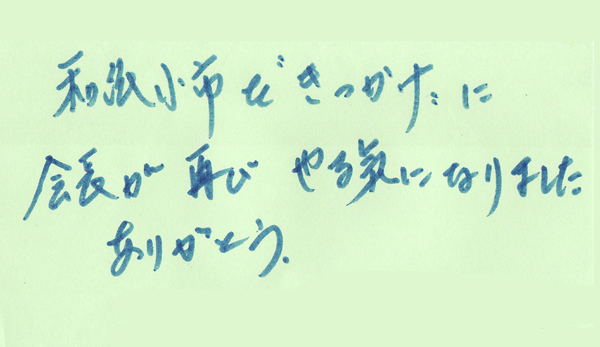 和紙小市をきっかけに
会長が再びやる気になりました
ありがとう.